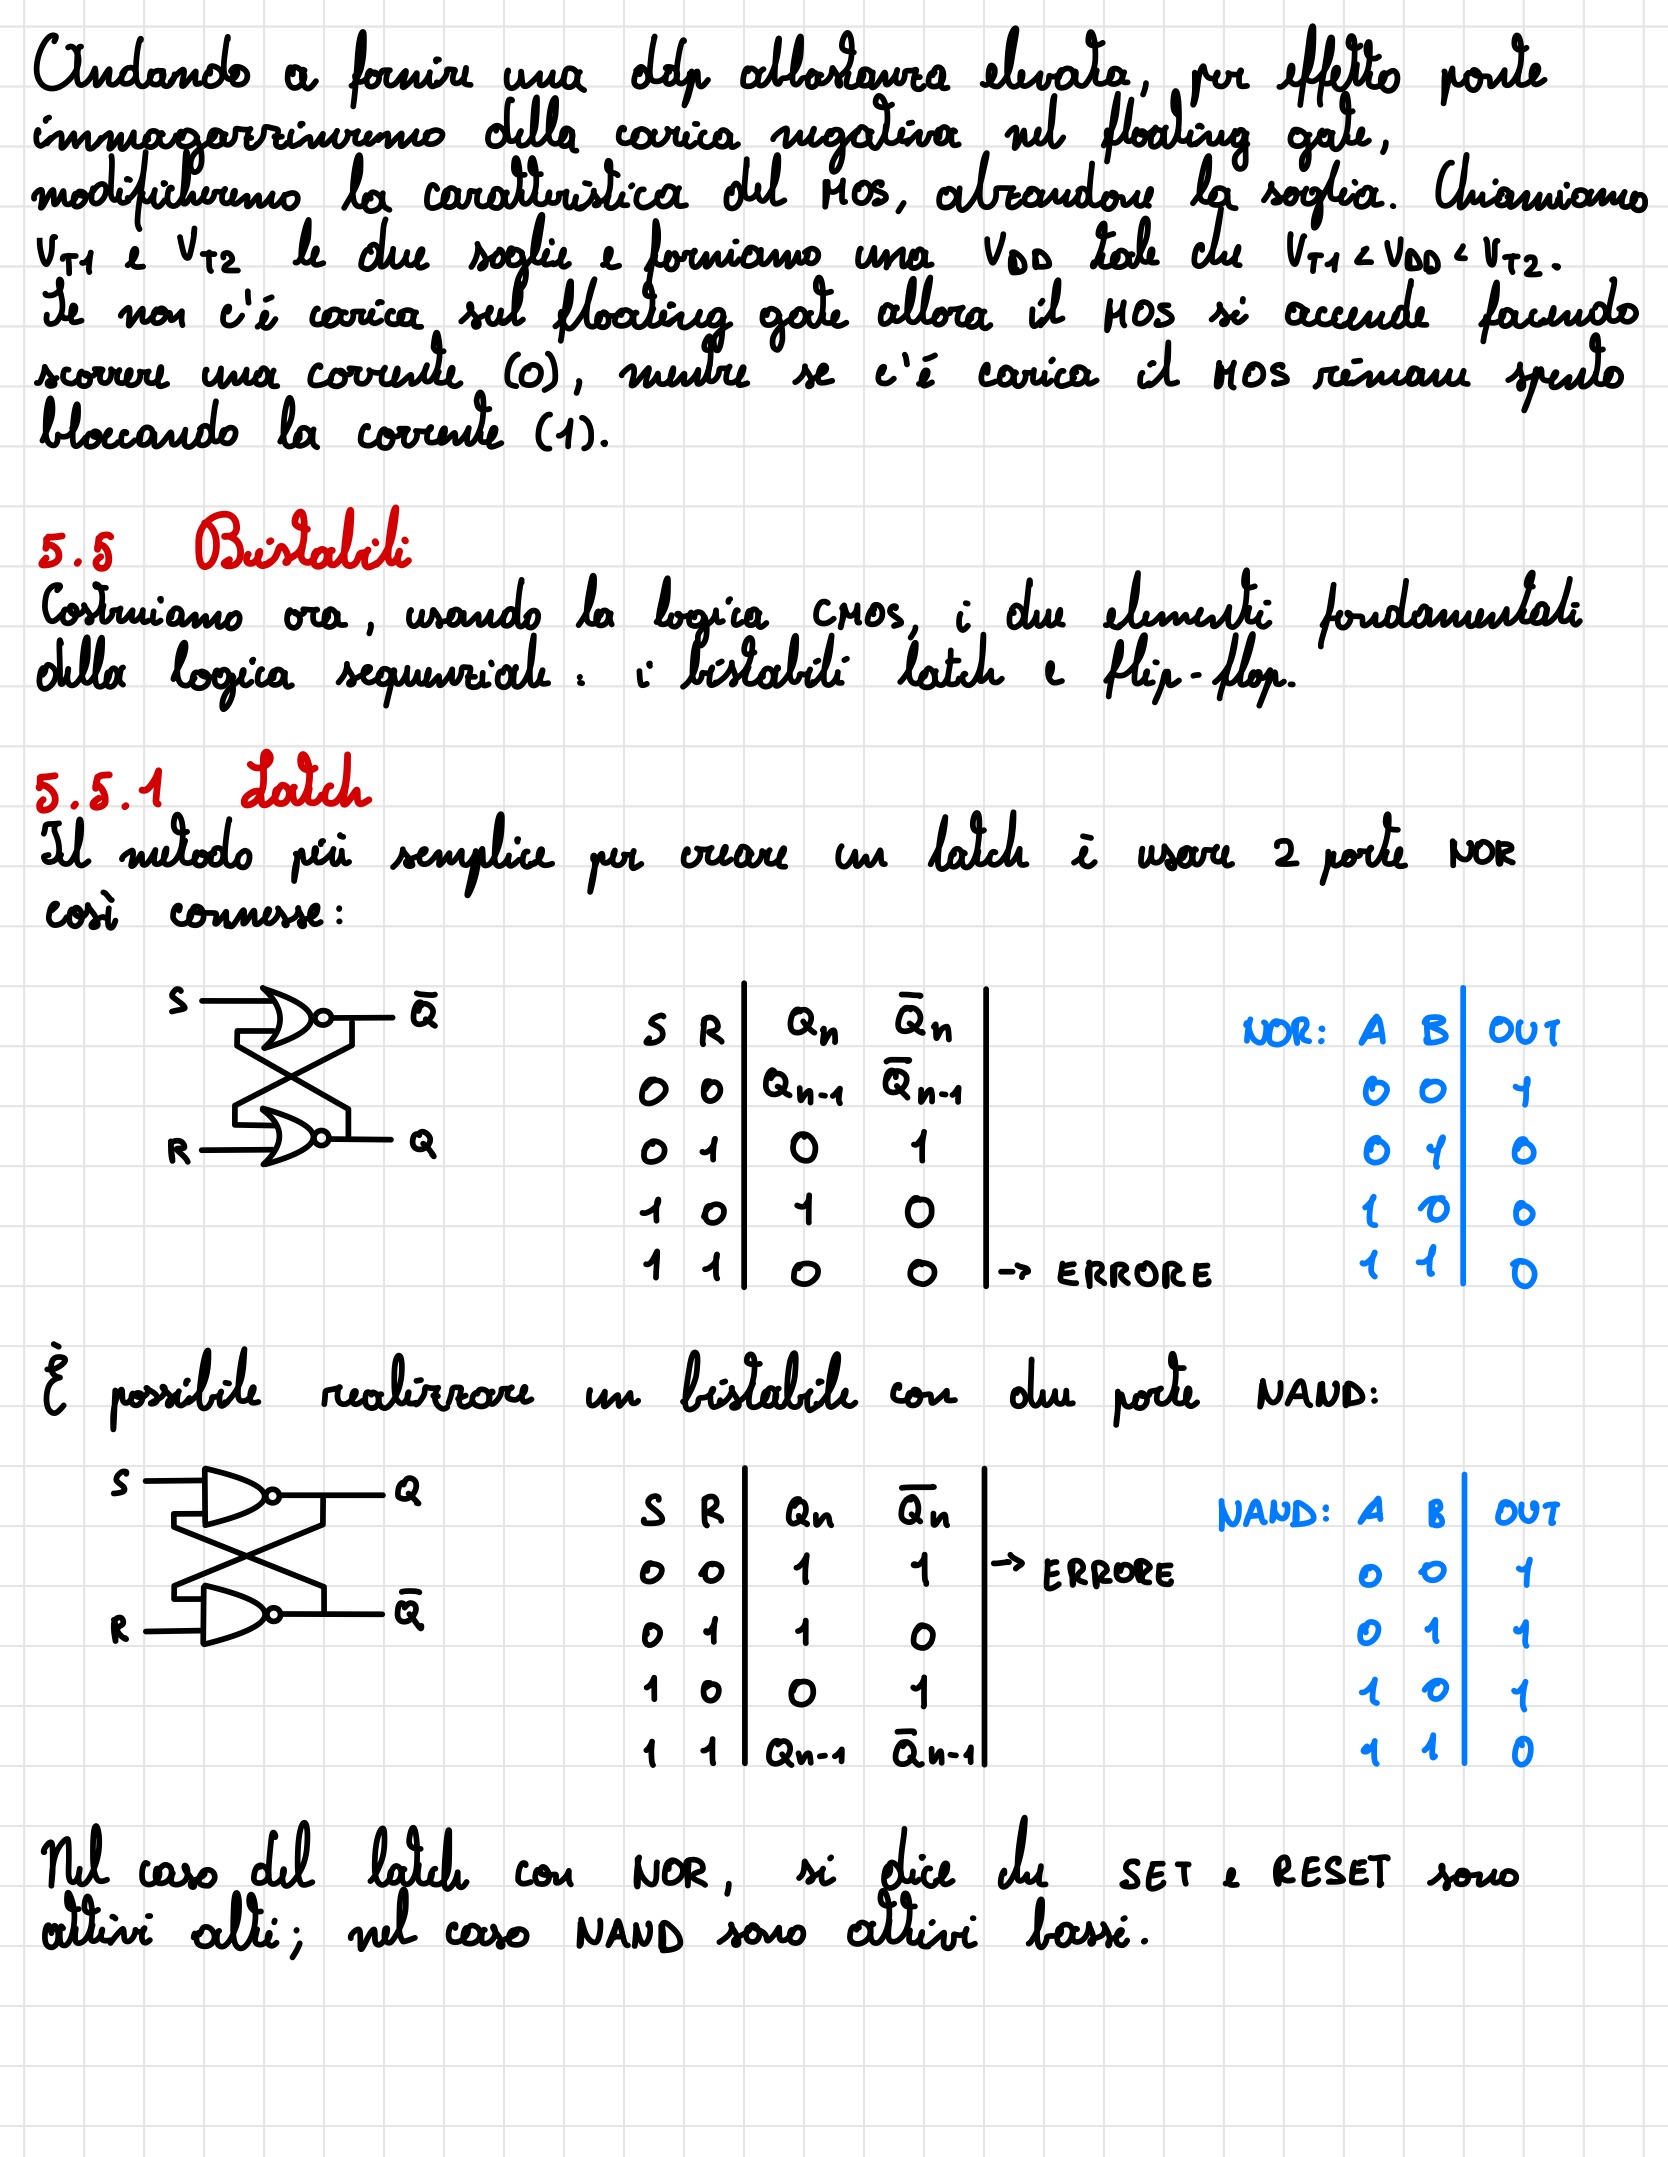 Andando a fornire una ddp abbastanza elevata, per effetto ponte
immagazzineremo della carica negativa nel floating gate,
modificheremo la caratteristica del MOS, alzandone la soglia. Chiamiamo
V_T1 e V_T2 le due soglie e forniamo una V_DD tale che V_T1 < V_DD < V_T2.
Se non c'é carica sul floating gate allora il MOS si accende facendo
scorrere una corrente (0), mentre se c'é carica il MOS rimane spento
bloccando la corrente (1).
5.5 Bistabili
Costruiamo ora, usando la logica CMOS, i due elementi fondamentali
della logica sequenziale: i bistabili latch e flip-flop.
5.5.1 Latch
Il metodo più semplice per creare un latch è usare 2 porte NOR
così connesse:
S Q̅
R Q
S R Qn Q̅n
0 0 Qn-1 Q̅n-1
0 1 0 1
1 0 1 0
1 1 0 0 → ERRORE
NOR: A B OUT
0 0 1
0 1 0
1 0 0
1 1 0
È possibile realizzare un bistabile con due porte NAND:
S Q
R Q̅
S R Qn Q̅n
0 0 1 1 → ERRORE
0 1 1 0
1 0 0 1
1 1 Qn-1 Q̅n-1
NAND: A B OUT
0 0 1
0 1 1
1 0 1
1 1 0
Nel caso del latch con NOR, si dice che SET e RESET sono
attivi alti; nel caso NAND sono attivi bassi.